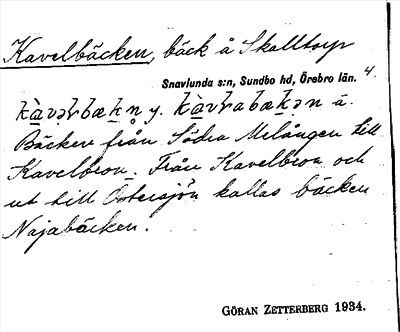 Kavelbäcken, bäck å Skalltorp
Snavlunda s:n, Sundbo hd, Örebro län. 4
y. ä.
Bäcken från Södra Milången till
Kavelbron. Från Kavelbron och
ut till Östersjön kallas bäcken
Najabäcken.
GÖRAN ZETTERBERG 1934.